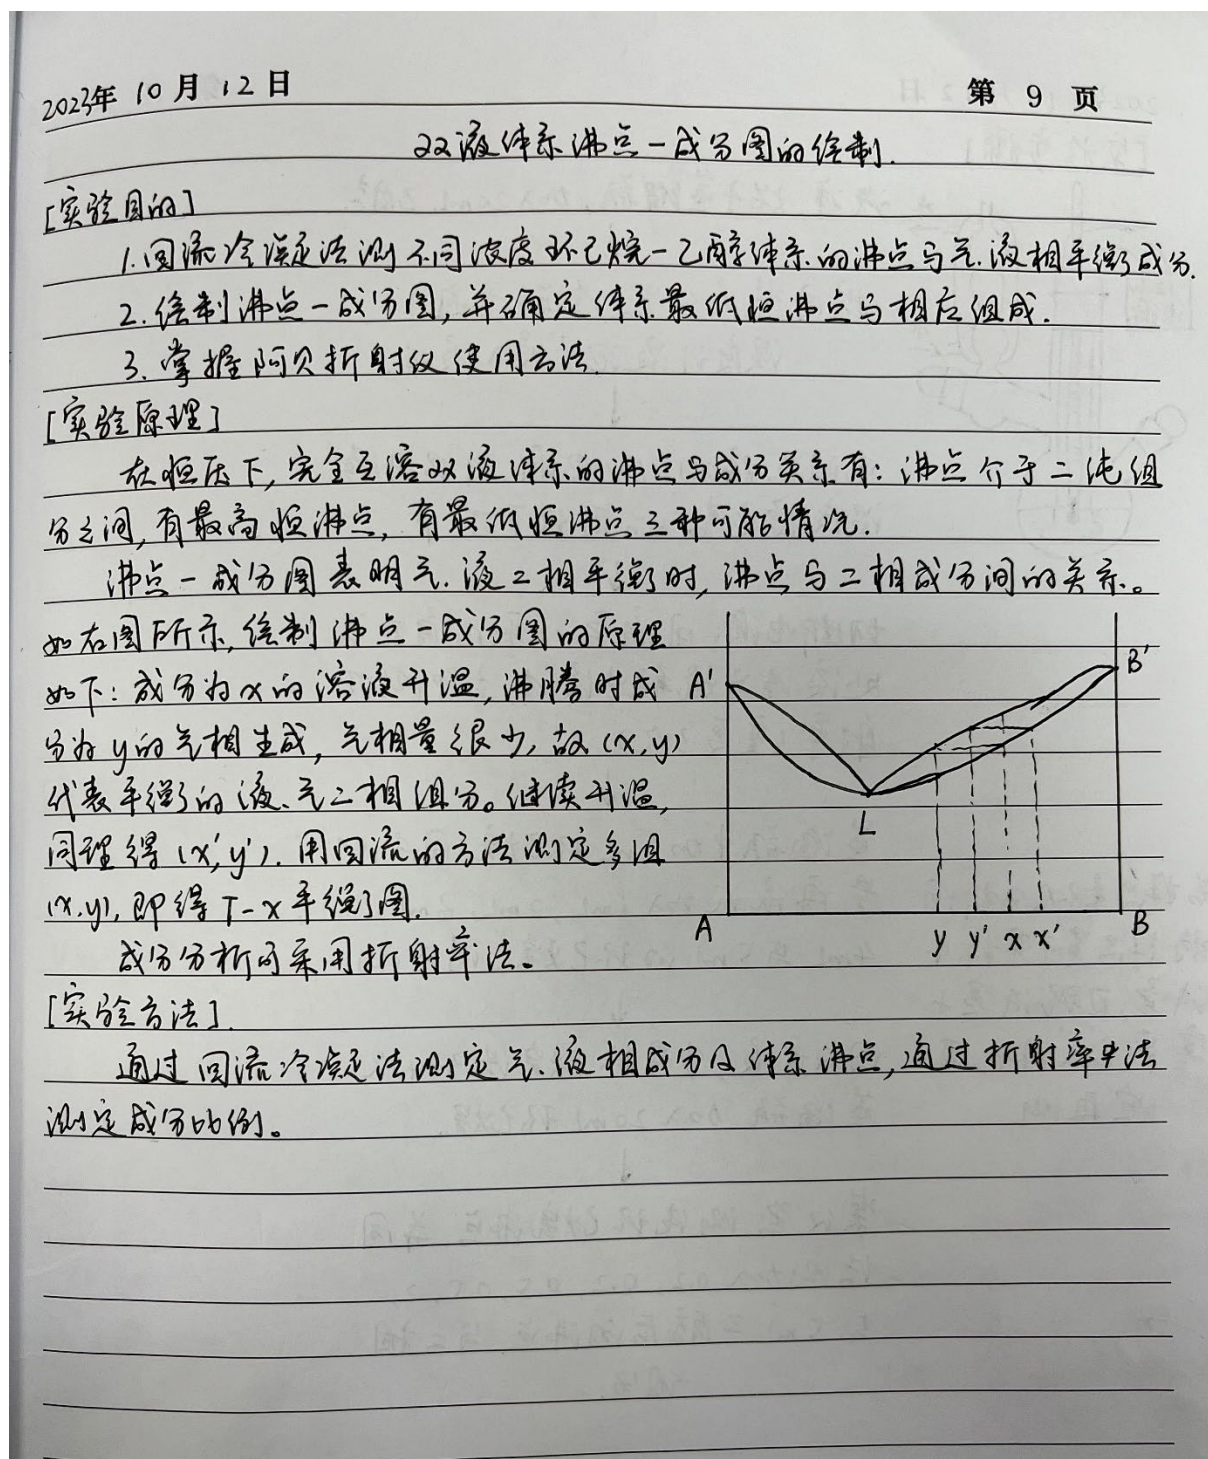 2023年 10 月 12 日
第 9 页
双液体系沸点-成分图的绘制.
[实验目的]
1.回流冷凝法测不同浓度环己烷-乙醇体系的沸点与气.液相平衡成分.
2.绘制沸点-成分图,并确定体系最低恒沸点与相应组成.
3.掌握阿贝折射仪使用方法.
[实验原理]
在恒压下,完全互溶双液体系的沸点与成分关系有:沸点介于二纯组
分之间,有最高恒沸点,有最低恒沸点三种可能情况.
沸点-成分图表明气.液二相平衡时,沸点与二相成分间的关系。
如右图所示,绘制沸点-成分图的原理
如下:成分为x的溶液升温,沸腾时成
分为y的气相生成,气相量很少,故(x,y)
代表平衡的液、气二相组分。继续升温,
同理得(x',y').用回流的方法测定多组
(x,y),即得T-x平衡图.
成分分析可采用折射率法。
A'
B'
L
A
B
y y' x x'
[实验方法].
通过回流冷凝法测定气.液相成分及体系沸点,通过折射率法
测定成分比例。